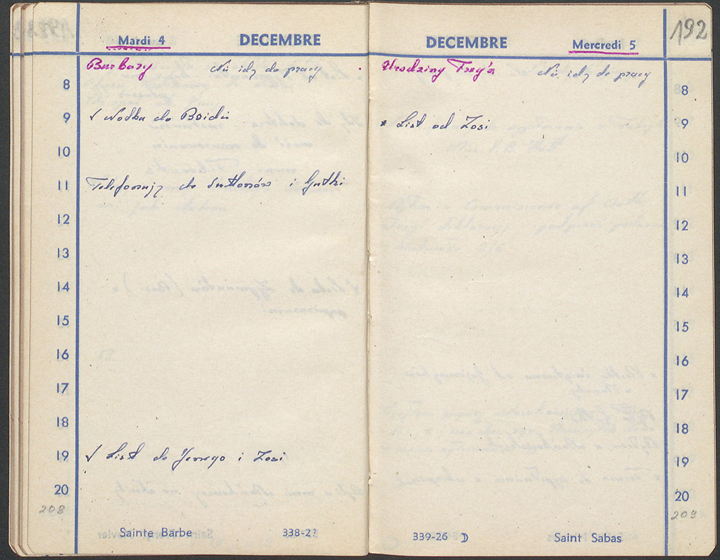 Mardi 4 DECEMBRE
Barbary Nie idę do pracy
8
9 √ Wodka do
10
11 Telefonuję do i
12
13
14
15
16
17
18
19 √ List do Jerzego i Zosi
20
208
Sainte Barbe 338-27
DECEMBRE Mercredi 5
192
Urodziny Nie idę do pracy
8
9 List od Zosi
10
11
12
13
14
15
16
17
18
19
20
209
339-26 Saint Sabas